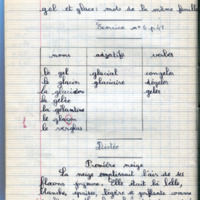 gel et glace : mots de la même famille
Exercice n° 6 p.41
noms adjectifs verbes
le gel glacial congeler
le glaçon glaciaire dégeler
la glacière geler
la gelée
la gélatine
le glaçon
le verglas
Dictée
Première neige
La neige emplissait l'air de ses
flocons Elle était là belle,
blanche, légère et